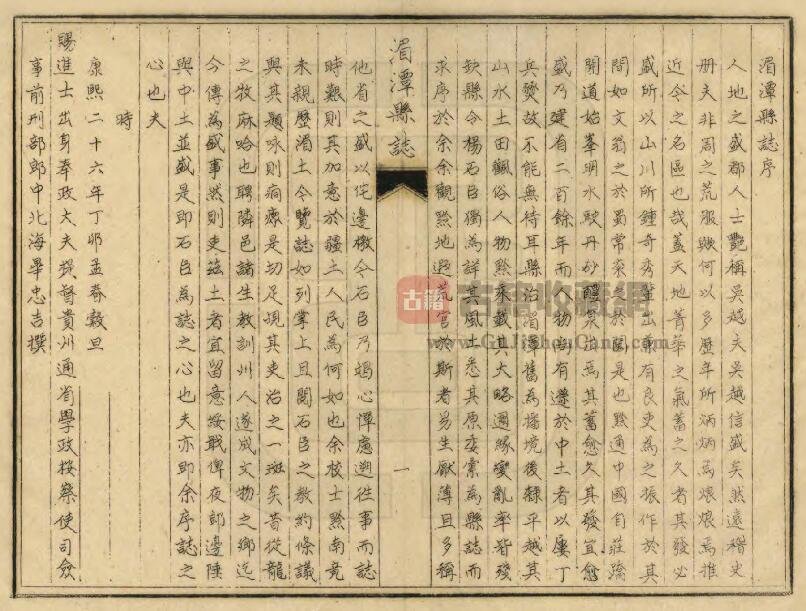 湄潭縣誌序
人地之盛郡人士艷稱吳越夫吳越信盛矣然遠稽史
册夫非周之荒服歟何以多歷年所炳炳焉烺烺焉推
近今之名區也哉蓋天地菁華之氣蓄之久者其發必
盛所以山川所鍾奇秀輩出兼有良吏為之振作於其
間如文翁之於蜀常袞之於閩是也黔通中國自莊蹻
開道始峯明水駛丹砂醴泉出焉其蓄愈久其發宜愈
盛乃建省二百餘年而人物尚有遜於中土者以屢丁
兵燹故不能無待耳縣治湄潭舊為播境後隸平越其
山水土田風俗人物黔乘載其大略迴緣變亂率皆殘
缺縣令楊石臣獨為詳其風土悉其原委彙為縣誌而
求序於余余觀黔地遐荒官於斯者易生厭薄且多稱
湄潭縣誌
一
他省之盛以侘邊檄今石臣乃竭心憚慮遡往事而誌
時艱則其加意於疆土人民為何如也余校士黔南竟
未親歷湄土今覽誌如列掌上且閱石臣之教約條議
與其題咏則痌瘝是切足覘其吏治之一斑矣昔從龍
之牧麻哈也聘隣邑諸生教訓州人遂成文物之鄉迄
今傳為盛事然則吏茲土者宜留意綏戢俾夜郎邊陲
與中土並盛是即石臣為誌之心也夫亦即余序誌之
心也夫
時
康熙二十六年丁卯孟春穀旦
賜進士出身奉政大夫提督貴州通省學政按察使司僉
事前刑部郎中北海畢忠吉撰
古籍
古籍收藏网
www.GuJiShouCang.com